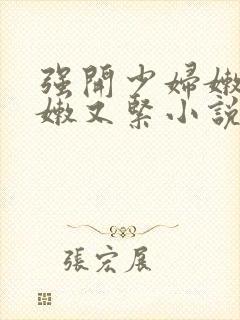 强開少婦嫩
嫩又緊小說
張宏展